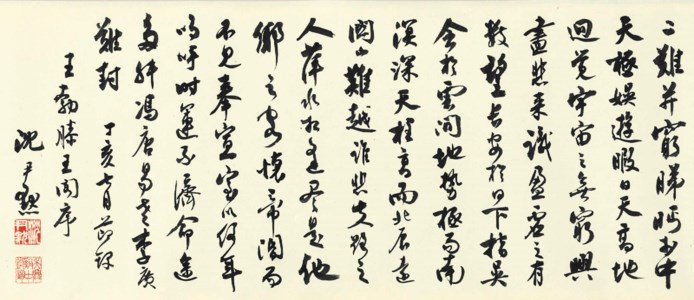 二難并窮睇眄於中
天極娛遊暇日天高地
迥覺宇宙之無窮興
盡悲来識盈虚之有
數望長安於日下指吴
會於雲間地勢極而南
溟深天柱高而北辰遠
關山難越誰悲失路之
人萍水相逢尽是他
鄉之客懷帝閽而
不見奉宣室以何年
嗚呼時運不濟命途
多舛馮唐易老李廣
難封 丁亥七月節録
王勃滕王閣序
沈尹默